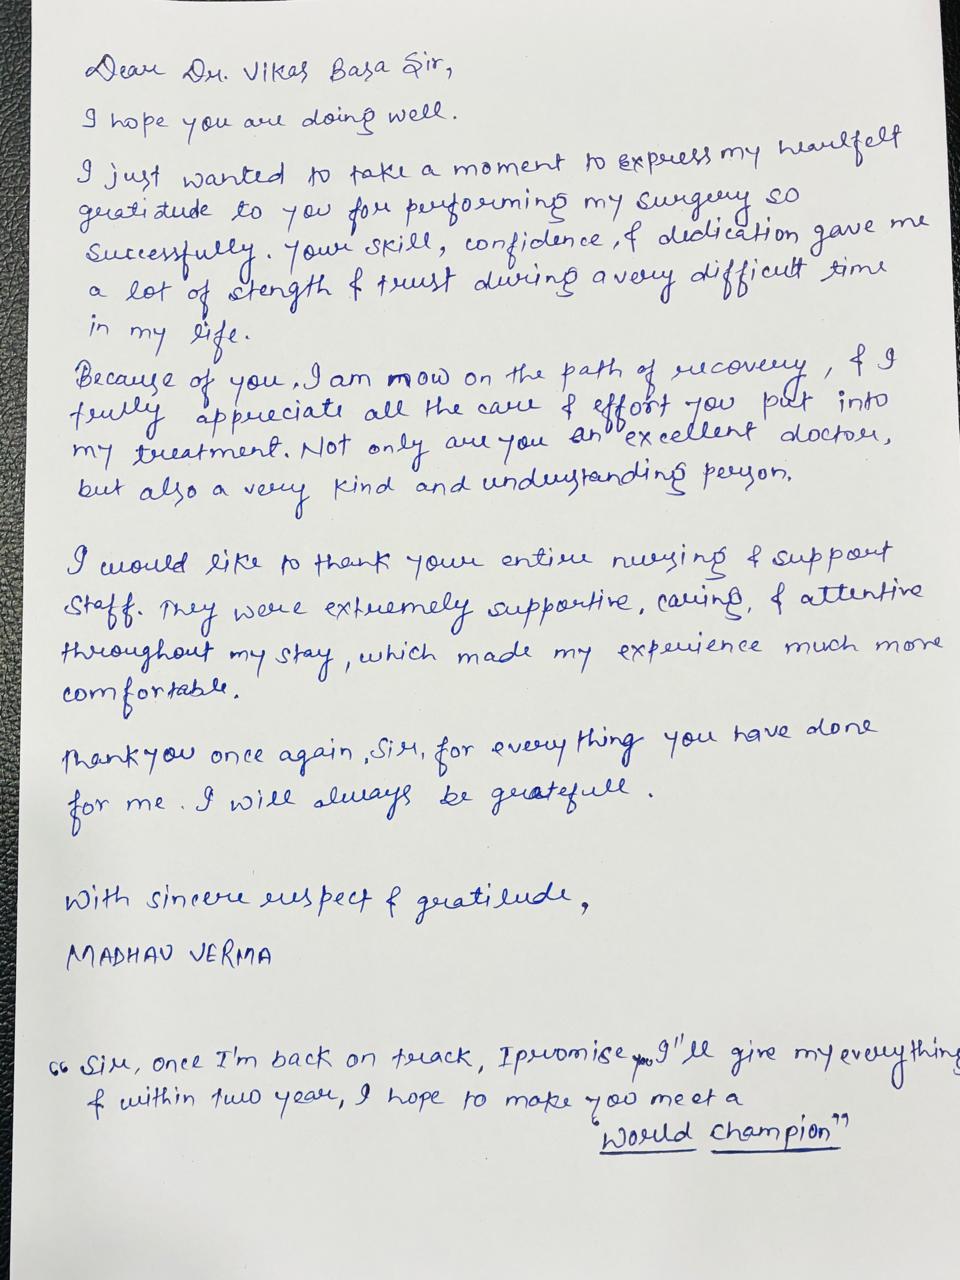 Dear Dr. Vikas Basa Sir,
I hope you are doing well.
I just wanted to take a moment to express my heartfelt
gratitude to you for performing my surgery so
successfully. Your skill, confidence, & dedication gave me
a lot of stength & trust during a very difficult time
in my life.
Because of you, I am now on the path of recovery, & I
trully appreciate all the care & effort you put into
my treatment. Not only are you an excellent doctor,
but also a very kind and understanding person.
I would like to thank your entire nursing & support
staff. They were extremely supportive, caring, & attentive
throughout my stay, which made my experience much more
comfortable.
Thank you once again, Sir, for everything you have done
for me. I will always be gratefull.
With sincere respect & gratitude,
MADHAV VERMA
"Sir, once I'm back on track, I promise you I"ll give my everything
& within two year, I hope to make you meet a
"World Champion"